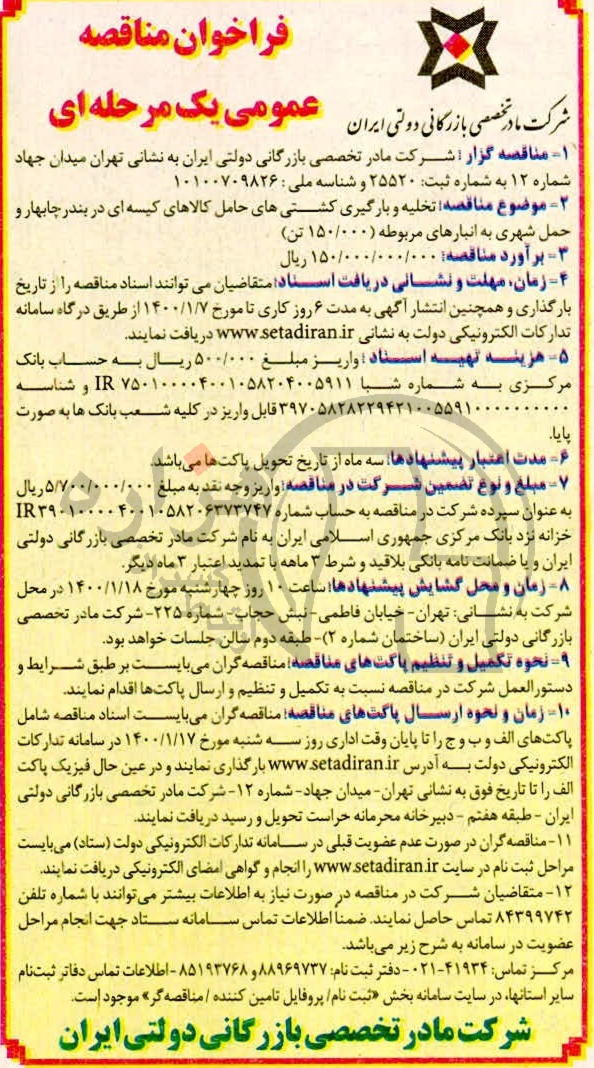 فراخوان مناقصه
عمومی یک مرحله‌ای
شرکت مادر تخصصی بازرگانی دولتی ایران
۱- مناقصه گزار : شرکت مادر تخصصی بازرگانی دولتی ایران به نشانی تهران میدان جهاد
شماره ۱۲ به شماره ثبت: ۲۵۵۲۰ و شناسه ملی : ۱۰۱۰۰۷۰۹۸۲۶
۲- موضوع مناقصه: تخلیه و بارگیری کشتی های حامل کالاهای کیسه ای در بندر چابهار و
حمل شهری به انبارهای مربوطه (۱۵۰/۰۰۰ تن)
۳- برآورد مناقصه: ۱۵۰/۰۰۰/۰۰۰/۰۰۰ ریال
۴- زمان، مهلت و نشانی دریافت اسناد: متقاضیان می توانند اسناد مناقصه را از تاریخ
بارگذاری و همچنین انتشار آگهی به مدت ۶ روز کاری تا مورخ ۱۴۰۰/۱/۷ از طریق درگاه سامانه
تدارکات الکترونیکی دولت به نشانی www.setadiran.ir دریافت نمایند.
۵- هزینه تهیه اسناد : واریز مبلغ ۵۰۰/۰۰۰ ریال به حساب بانک
مرکزی به شماره شبا IR ۷۵۰۱۰۰۰۰۴۰۰۱۰۵۸۲۰۴۰۰۵۹۱۱ و شناسه
۳۹۷۰۵۸۲۸۲۲۹۴۲۱۰۰۵۵۹۱۰۰۰۰۰۰۰۰۰۰ قابل واریز در کلیه شعب بانک ها به صورت
پایا.
۶- مدت اعتبار پیشنهادها: سه ماه از تاریخ تحویل پاکت‌ها می‌باشد.
۷- مبلغ و نوع تضمین شرکت در مناقصه: واریز وجه نقد به مبلغ ۵/۷۰۰/۰۰۰/۰۰۰ ریال
به عنوان سپرده شرکت در مناقصه به حساب شماره IR۳۹۰۱۰۰۰۰۴۰۰۱۰۵۸۲۰۶۳۷۳۷۴۷
خزانه نزد بانک مرکزی جمهوری اسلامی ایران به نام شرکت مادر تخصصی بازرگانی دولتی
ایران و یا ضمانت نامه بانکی بلاقید و شرط ۳ ماهه با تمدید اعتبار ۳ ماه دیگر.
۸- زمان و محل گشایش پیشنهادها: ساعت ۱۰ روز چهارشنبه مورخ ۱۴۰۰/۱/۱۸ در محل
شرکت به نشانی: تهران- خیابان فاطمی- نبش حجاب- شماره ۲۲۵- شرکت مادر تخصصی
بازرگانی دولتی ایران (ساختمان شماره ۲)- طبقه دوم سالن جلسات خواهد بود.
۹- نحوه تکمیل و تنظیم پاکت‌های مناقصه: مناقصه‌گران می‌بایست بر طبق شرایط و
دستورالعمل شرکت در مناقصه نسبت به تکمیل و تنظیم و ارسال پاکت‌ها اقدام نمایند.
۱۰- زمان و نحوه ارسال پاکت‌های مناقصه: مناقصه‌گران می‌بایست اسناد مناقصه شامل
پاکت‌های الف و ب و ج را تا پایان وقت اداری روز سه شنبه مورخ ۱۴۰۰/۱/۱۷ در سامانه تدارکات
الکترونیکی دولت به آدرس www.setadiran.ir بارگذاری نمایند و در عین حال فیزیک پاکت
الف را تا تاریخ فوق به نشانی تهران- میدان جهاد- شماره ۱۲- شرکت مادر تخصصی بازرگانی دولتی
ایران - طبقه هفتم - دبیرخانه محرمانه حراست تحویل و رسید دریافت نمایند.
۱۱- مناقصه‌گران در صورت عدم عضویت قبلی در سامانه تدارکات الکترونیکی دولت (ستاد) می‌بایست
مراحل ثبت نام در سایت www.setadiran.ir را انجام و گواهی امضای الکترونیکی دریافت نمایند.
۱۲- متقاضیان شرکت در مناقصه در صورت نیاز به اطلاعات بیشتر می‌توانند با شماره تلفن
۸۴۳۹۹۷۴۲ تماس حاصل نمایند. ضمناً اطلاعات تماس سامانه ستاد جهت انجام مراحل
عضویت در سامانه به شرح زیر می‌باشد.
مرکز تماس: ۴۱۹۳۴-۰۲۱- دفتر ثبت نام: ۸۸۹۶۹۷۳۷ و ۸۵۱۹۳۷۶۸ - اطلاعات تماس دفاتر ثبت‌نام
سایر استانها، در سایت سامانه بخش «ثبت نام/ پروفایل تامین کننده / مناقصه‌گر» موجود است.
شرکت مادر تخصصی بازرگانی دولتی ایران